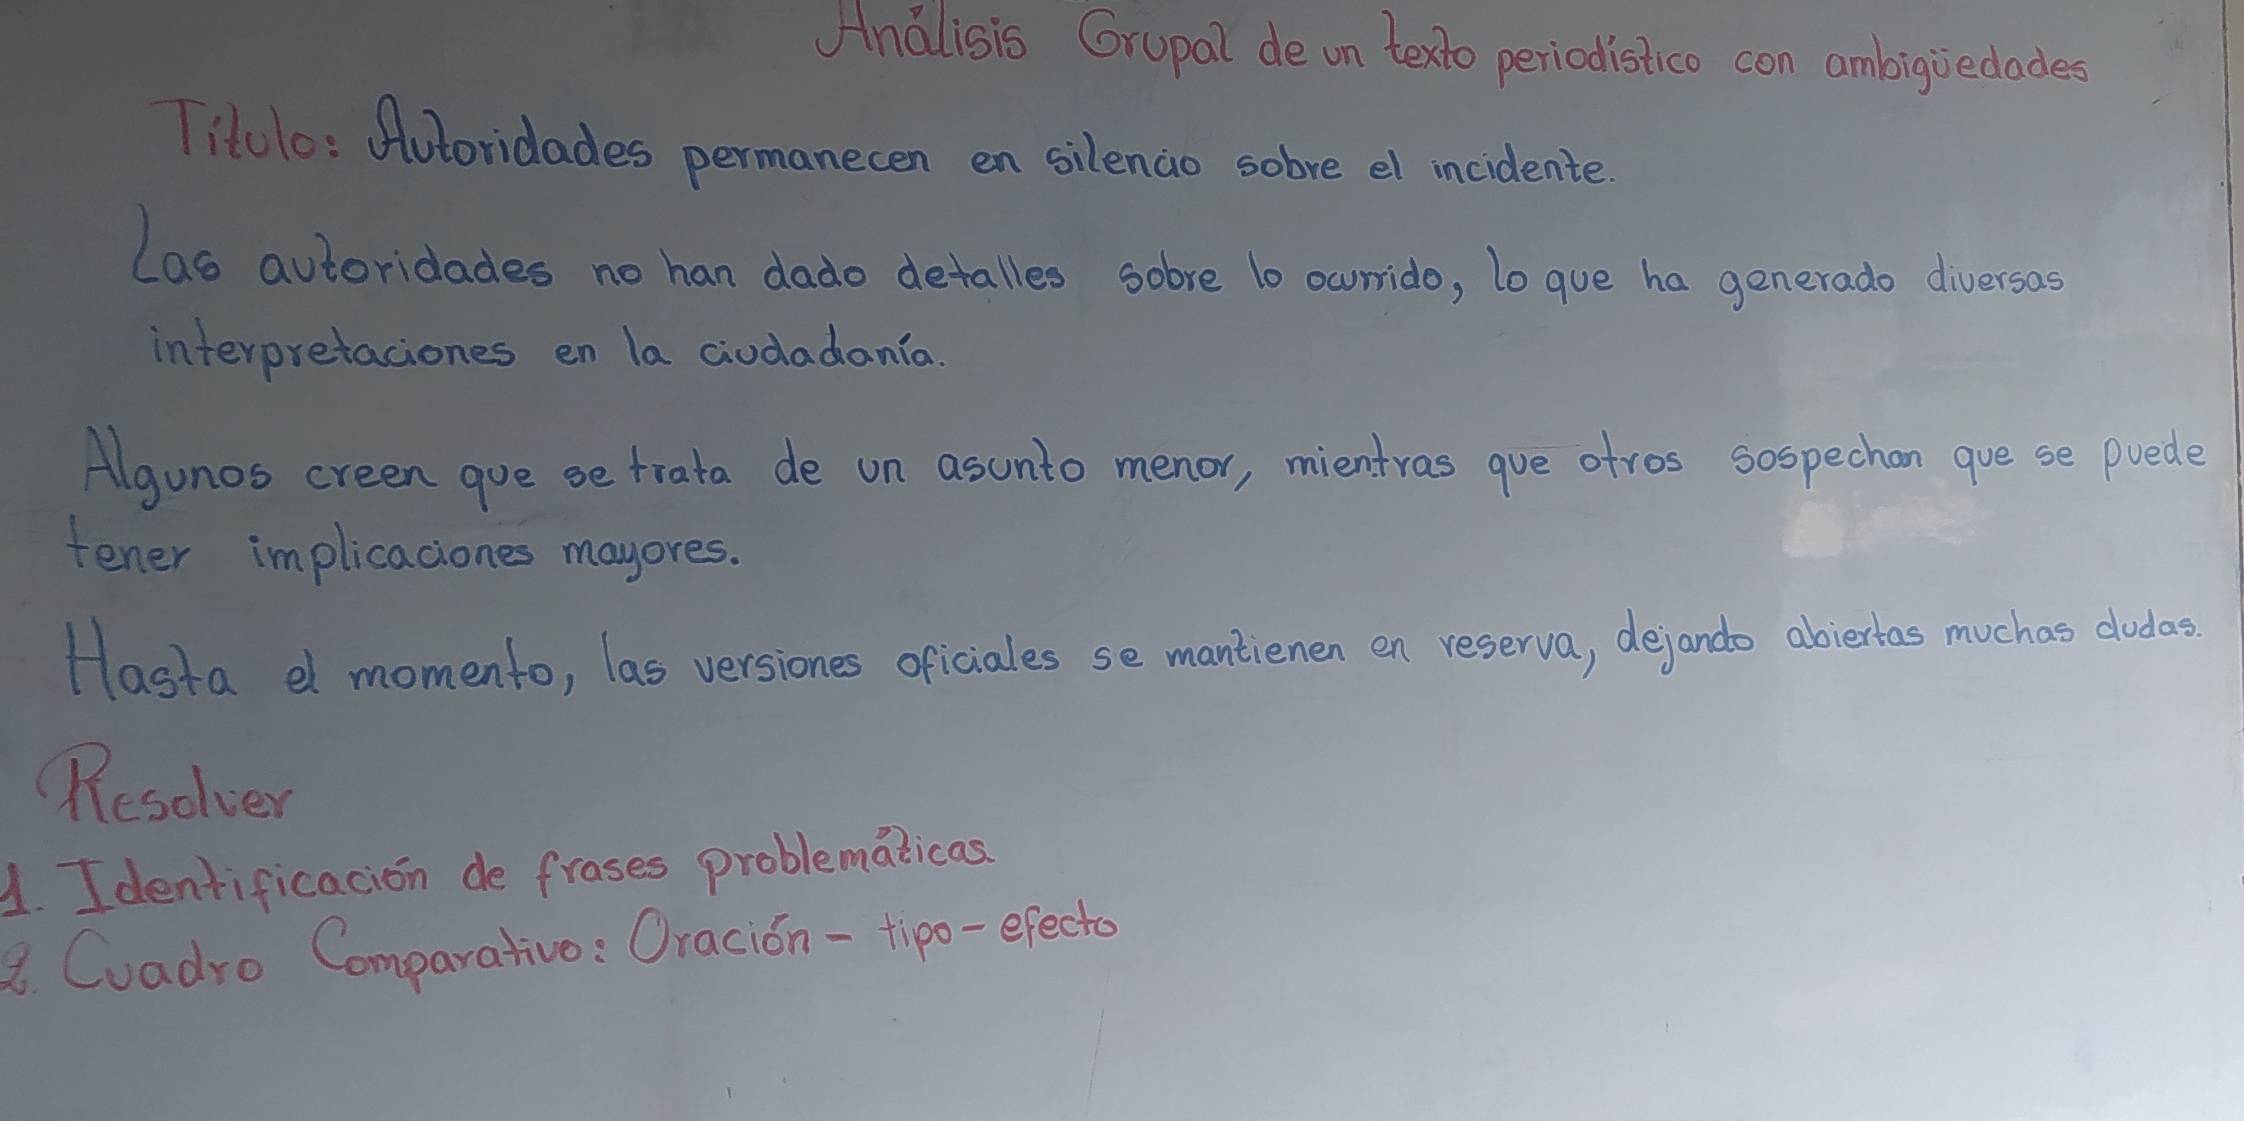 Análisis Grupal de un texto periodístico con ambigüedades
Título: Autoridades permanecen en silencio sobre el incidente.
Las autoridades no han dado detalles sobre lo ocurrido, lo que ha generado diversas
interpretaciones en la ciudadanía.
Algunos creen que se trata de un asunto menor, mientras que otros sospechan que se puede
tener implicaciones mayores.
Hasta el momento, las versiones oficiales se mantienen en reserva, dejando abiertas muchas dudas.
Resolver
1. Identificación de frases problemáticas.
2. Cuadro Comparativo: Oración - tipo - efecto